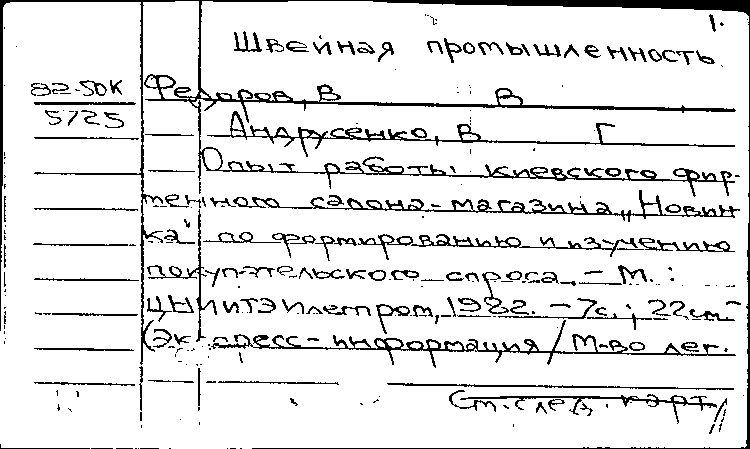 1.
Швейная промышленность
82-50К Федоров, В В
5725
Андрусенко, В Г
Опыт работы киевского фир-
менного салона-магазина „Новин
ка" по формированию и изучению
покупательского спроса. – М. :
ЦНИИТЭИлегпром, 1982. – 7с. ; 22см –
(Экспресс-информация / М-во лег.
См. след. карт.